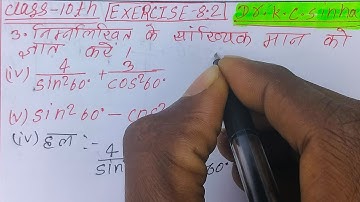 class-10th EXERCISE-8.2 Dr.K.C.Sinha
3. निम्नलिखित के सांख्यिक मान को
ज्ञात करें।
(iv) 4/sin²60° + 3/cos²60°
(v) sin²60° - cos²
(iv) हल :-
4/sin 60°